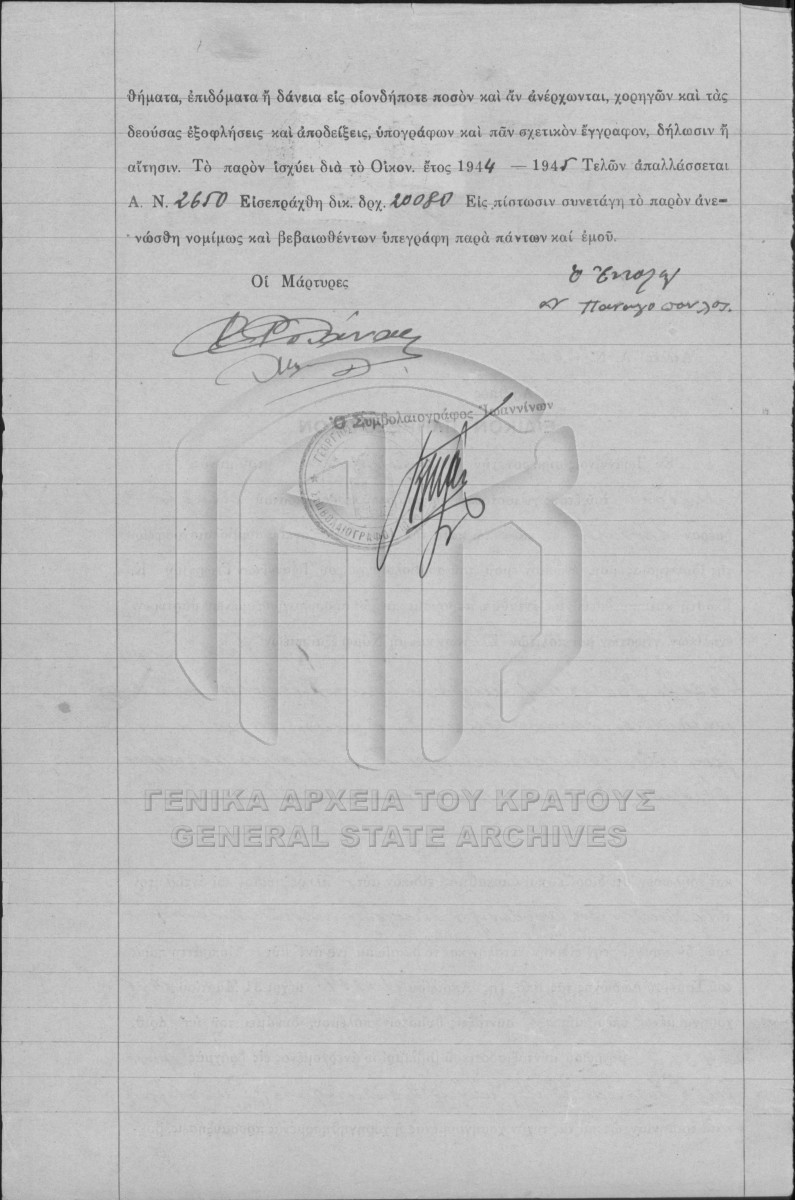 θήματα, ἐπιδόματα ἢ δάνεια εἰς οἱονδήποτε ποσὸν καὶ ἂν ἀνέρχωνται, χορηγῶν καὶ τὰς
δεούσας ἐξοφλήσεις καὶ ἀποδείξεις, ὑπογράφων καὶ πᾶν σχετικὸν ἔγγραφον, δήλωσιν ἢ
αἴτησιν. Τὸ παρὸν ἰσχύει διὰ τὸ Οἰκον. ἔτος 1944 — 1945 Τελῶν ἀπαλλάσσεται
Α. Ν. 2650 Εἰσεπράχθη δικ. δρχ. 20080 Εἰς πίστωσιν συνετάγη τὸ παρὸν ἀνε-
νώσθη νομίμως καὶ βεβαιωθέντων ὑπεγράφη παρὰ πάντων καί ἐμοῦ.
Οἱ Μάρτυρες
Παναγόπουλος.
Ὁ Συμβολαιογράφος Ἰωαννίνων
ΓΕΝΙΚΑ ΑΡΧΕΙΑ ΤΟΥ ΚΡΑΤΟΥΣ
GENERAL STATE ARCHIVES